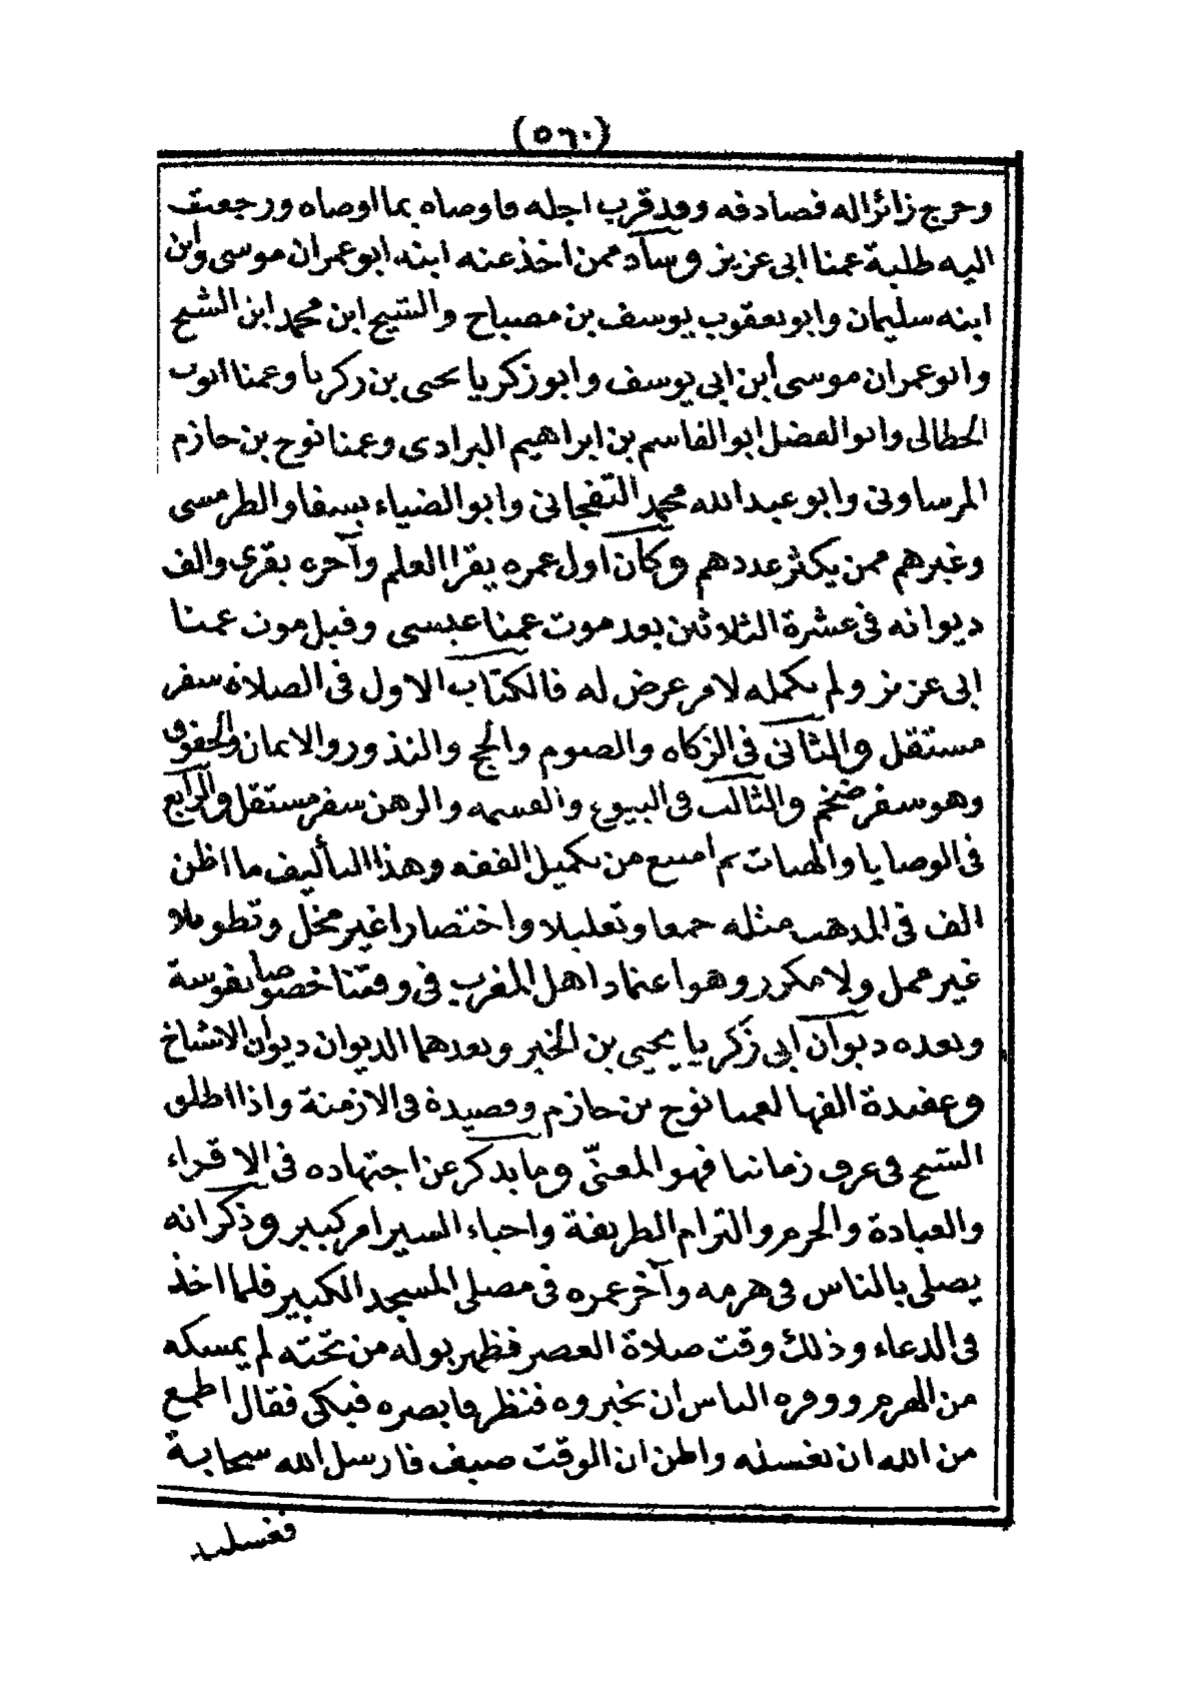 (٥٦٠)
وخرج زائرا له فصادفه وقد قرب اجله فاوصاه بما اوصاه ورجعت
اليه طلبة عمنا ابى عزيز وساد ممن اخذ عنه ابنه ابو عمران موسى وابن
ابنه سليمان وابو يعقوب يوسف بن مصباح والشيخ ابن محمد ابن الشيخ
وابو عمران موسى أبن ابى يوسف وابو زكريا يحيى بن زكريا وعمنا ايوب
الحطالى وابو الفضل ابو القاسم بن ابراهيم البرادى وعمنا نوح بن حازم
المرساونى وابو عبد الله محمد التفجانى وابو الضياء يسفاو الطرمسى
وغيرهم ممن يكثر عددهم وكان اول عمره يقرا العلم وآخره يقرى والف
ديوانه فى عشرة الثلاثين بعد موت عمنا عيسى وقبل موت عمنا
ابى عزيز ولم يكمله لامر عرض له فالكتاب الاول فى الصلاة سفر
مستقل والثانى فى الزكاه والصوم والحج والنذور والايمان والحقوق
وهو سفر ضخم والثالث فى البيوع والقسمه والرهن سفر مستقل والرابع
فى الوصايا والهبات ثم امتنع من تكميل الفقه وهذا التأليف ما اظن
الف فى المذهب مثله جمعا وتعليلا واختصارا غير مخل وتطويلا
غير ممل ولا مكرر وهو اعتماد اهل المغرب فى وقتنا خصوصا نفوسة
وبعده ديوان ابى زكريا يحيى بن الخير وبعدهما الديوان ديوان الاشياخ
وعقيدة الفها لعمنا نوح بن حازم وقصيدة فى الازمنة واذا اطلق
الشيخ فى عرف زماننا فهو المعنىّ وما يذكر عن اجتهاده فى الاقراء
والعبادة والحزم والتزام الطريقة واحياء السير امر كبير وذكر انه
يصلى بالناس فى هرمه وآخر عمره فى مصلى المسجد الكبير فلما اخذ
فى الدعاء وذلك وقت صلاة العصر فظهر بوله من تحته لم يمسكه
من الهرم ووقره الناس ان يخبروه فنظر فابصره فبكى فقال اطمع
من الله ان يغسله واظن ان الوقت صيف فارسل الله سحابة
فغسلته